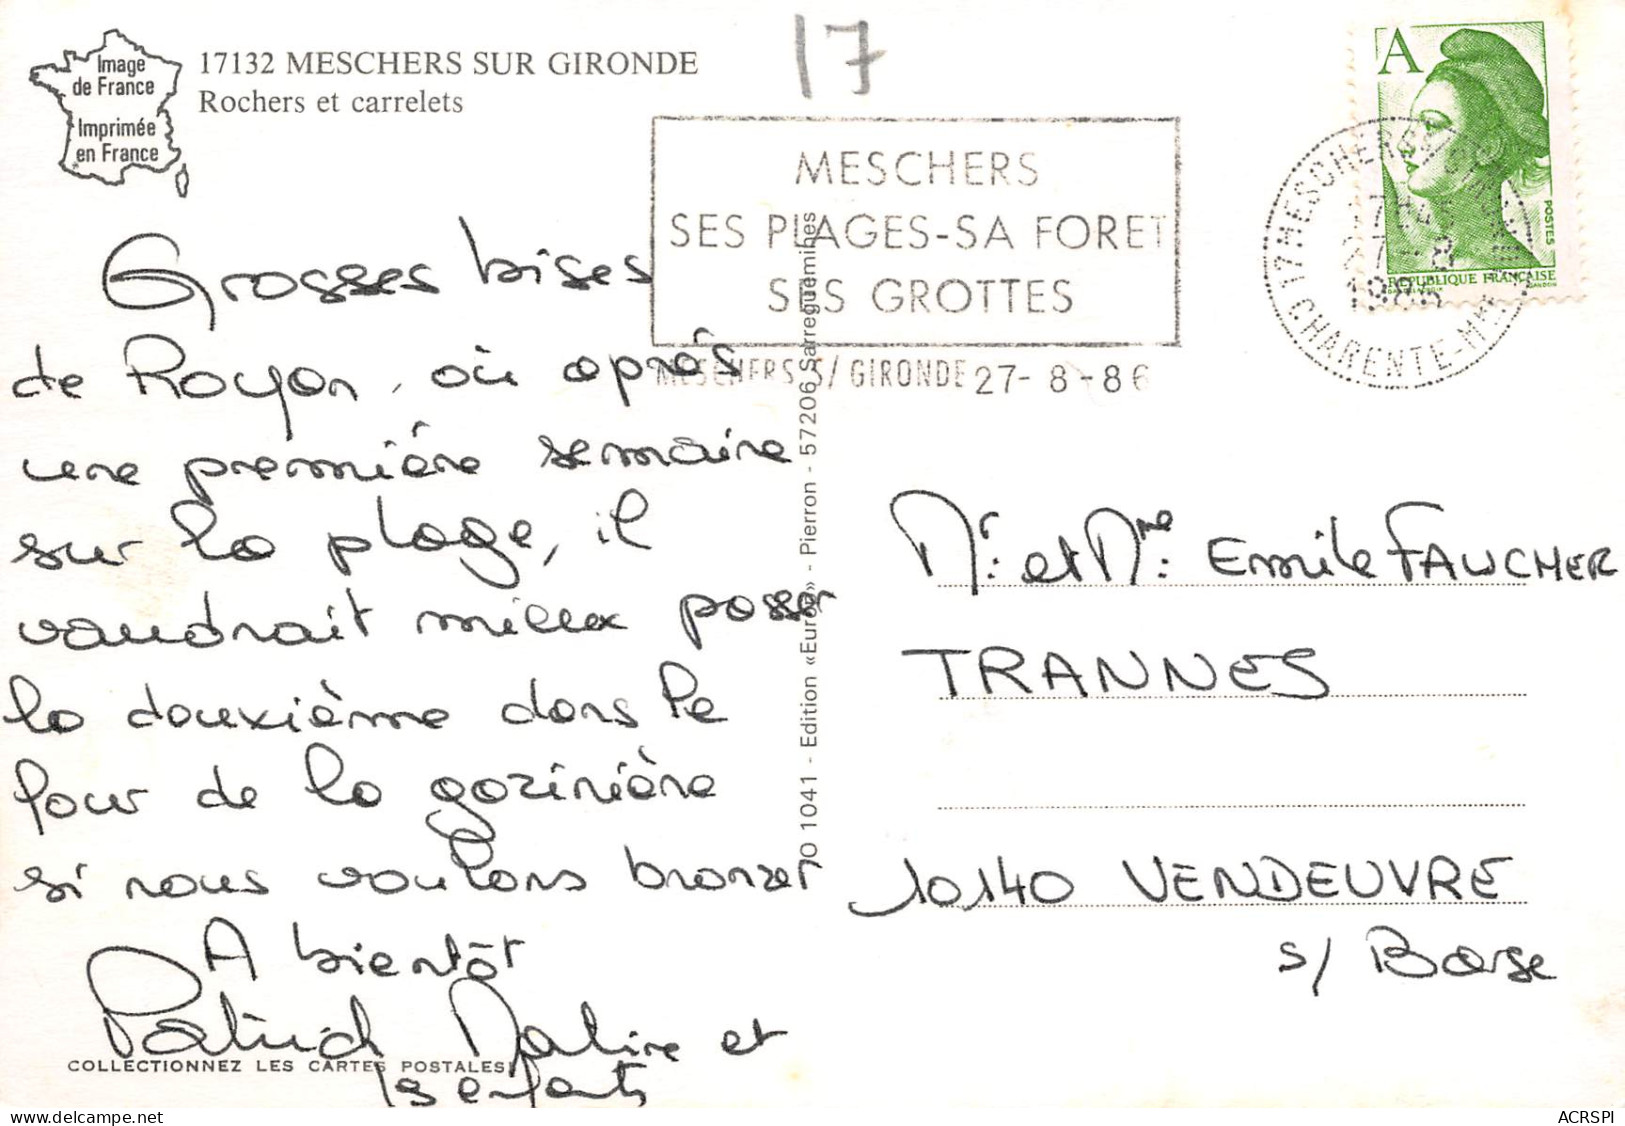 Image
de France
Imprimée
en France
17132 MESCHERS SUR GIRONDE
Rochers et carrelets
17
MESCHERS
SES PLAGES-SA FORET
SES GROTTES
MESCHERS S/ GIRONDE 27-8-86
A
POSTES
REPUBLIQUE FRANÇAISE
17 MESCHERS S/ GIRONDE
27-8
1986
CHARENTE-MME
Grosses bises
de Royan, où après
une première semaine
sur la plage, il
vaudrait mieux passer
la deuxième dans le
four de la gazinière
si nous voulons bronzer
A bientôt
Patrick Nadine et
les enfants
COLLECTIONNEZ LES CARTES POSTALES
1041 - Edition «Europ» - Pierron - 57206 Sarreguemines
Mr. et Mme. Emile FAUCHER
TRANNES
10140 VENDEUVRE
s/ Barse
delcampe.net
ACRSPI